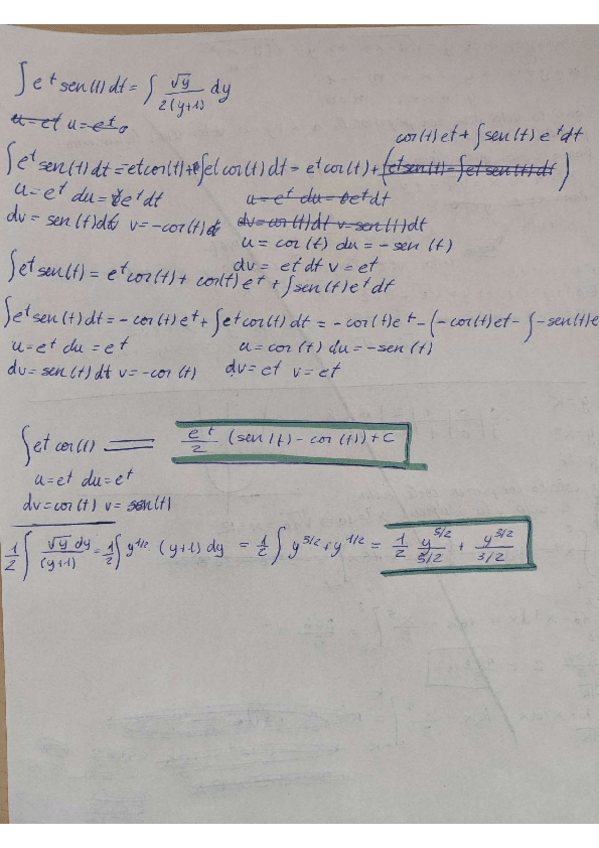 ∫ e^t sen(t) dt = ∫ √y / 2(y+1) dy
u = et u = e^t
cos(t) et + ∫ sen(t) e^t dt
∫ e^t sen(t) dt = -et cos(t) + ∫ et cos(t) dt = e^t cos(t) + (et sen(t) - ∫ et sen(t) dt)
u = e^t du = e^t dt u = e^t du = e^t dt
dv = sen(t) dt v = -cos(t) dv = cos(t) dt v = sen(t) dt
u = cos(t) du = -sen(t)
dv = et dt v = et
∫ e^t sen(t) = e^t cos(t) + cos(t) e^t + ∫ sen(t) e^t dt
∫ e^t sen(t) dt = -cos(t) e^t + ∫ et cos(t) dt = -cos(t) e^t - (-cos(t) et - ∫ -sen(t) e
u = et du = et u = cos(t) du = -sen(t)
dv = sen(t) dt v = -cos(t) dv = et v = et
∫ et cos(t) = e^t / 2 (sen(t) - cos(t)) + C
u = et du = et
dv = cos(t) v = sen(t)
1/2 ∫ √y dy / (y+1) = 1/2 ∫ y^1/2 (y+1) dy = 1/2 ∫ y^5/2 + y^1/2 = 1/2 y^5/2 / 5/2 + y^3/2 / 3/2